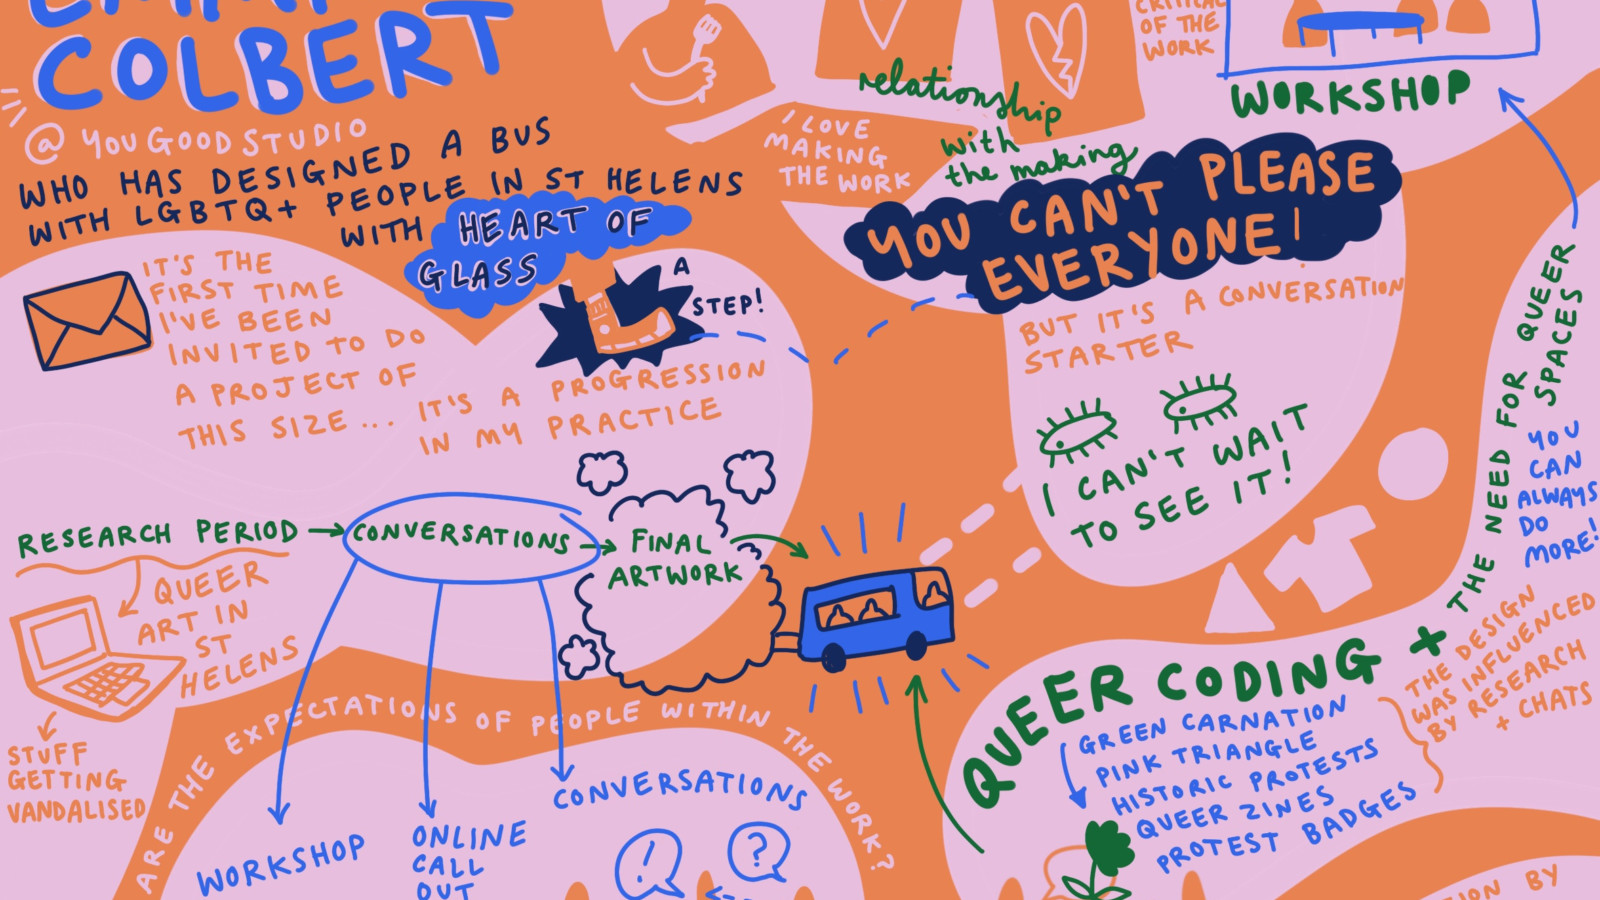 COLBERT
@ YOUGOODSTUDIO
WHO HAS DESIGNED A BUS
WITH LGBTQ+ PEOPLE IN ST HELENS
WITH HEART OF
GLASS
IT'S THE
FIRST TIME
I'VE BEEN
INVITED TO DO
A PROJECT OF
THIS SIZE...
A
STEP!
IT'S A PROGRESSION
IN MY PRACTICE
RESEARCH PERIOD
CONVERSATIONS
FINAL
ARTWORK
QUEER
ART IN
ST
HELENS
STUFF
GETTING
VANDALISED
ARE THE EXPECTATIONS OF PEOPLE WITHIN THE WORK?
WORKSHOP
ONLINE
CALL
OUT
CONVERSATIONS
!
?
I LOVE
MAKING
THE WORK
relationship
with
the making
CRITICAL
OF THE
WORK
WORKSHOP
YOU CAN'T PLEASE
EVERYONE!
BUT IT'S A CONVERSATION
STARTER
I CAN'T WAIT
TO SEE IT!
THE NEED FOR QUEER
SPACES
YOU
CAN
ALWAYS
DO
MORE!
QUEER CODING +
GREEN CARNATION
PINK TRIANGLE
HISTORIC PROTESTS
QUEER ZINES
PROTEST BADGES
THE DESIGN
WAS INFLUENCED
BY RESEARCH
+ CHATS
BY